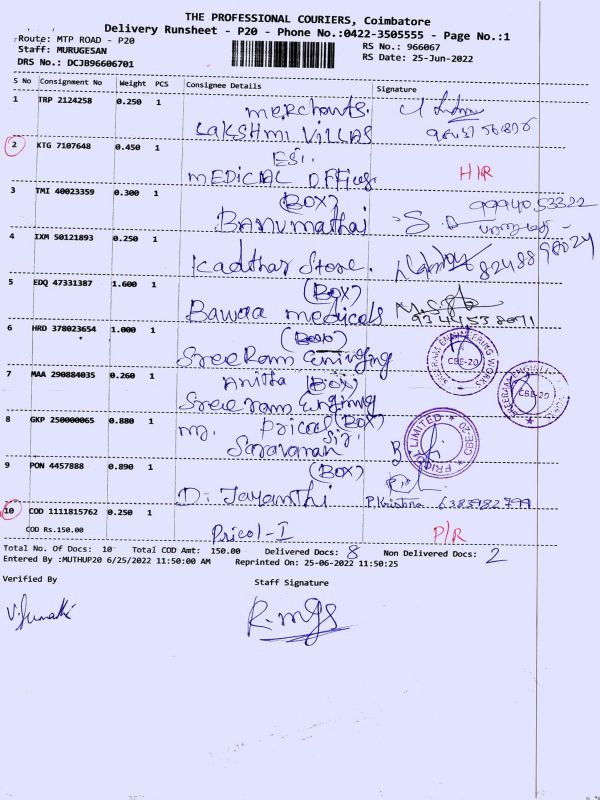 THE PROFESSIONAL COURIERS, Coimbatore
Delivery Runsheet - P20 - Phone No.:0422-3505555 - Page No.:1
Route: MTP ROAD - P20 RS No.: 966067
Staff: MURUGESAN RS Date: 25-Jun-2022
DRS No.: DCJB96606701
S No Consignment No Weight PCS Consignee Details Signature
merchants.
1 TRP 2124258 0.250 1
LAKSHMI VILLAS
ESI.
2 KTG 7107648 0.450 1 H/R
MEDICAL OFFICES
(BOX) 9994053322
3 TMI 40023359 0.300 1
Banumathai
4 IXM 50121893 0.250 1
Kadthar Store. 8248898024
(BOX)
5 EDQ 47331387 1.600 1
Bawaa medicals 9344538071
(Box)
6 HRD 378023654 1.000 1
Sree Ram
SREERAM ENGINEERING WORKS CBE-20
Anitha (BOX)
7 MAA 290884035 0.260 1
Sree ram
SREERAM CBE-20
Mr. Pricol (BOX)
8 GKP 250000065 0.880 1
Saravanan Sir.
PRICOL LIMITED CBE-20
(BOX)
9 PON 4457888 0.890 1
D. Jayanthi P. Krishna 6383982799
10 COD 1111815762 0.250 1
COD Rs.150.00 Pricol-I P/R
Total No. Of Docs: 10 Total COD Amt: 150.00 Delivered Docs: 8 Non Delivered Docs: 2
Entered By :MUTHUP20 6/25/2022 11:50:00 AM Reprinted On: 25-06-2022 11:50:25
Verified By Staff Signature